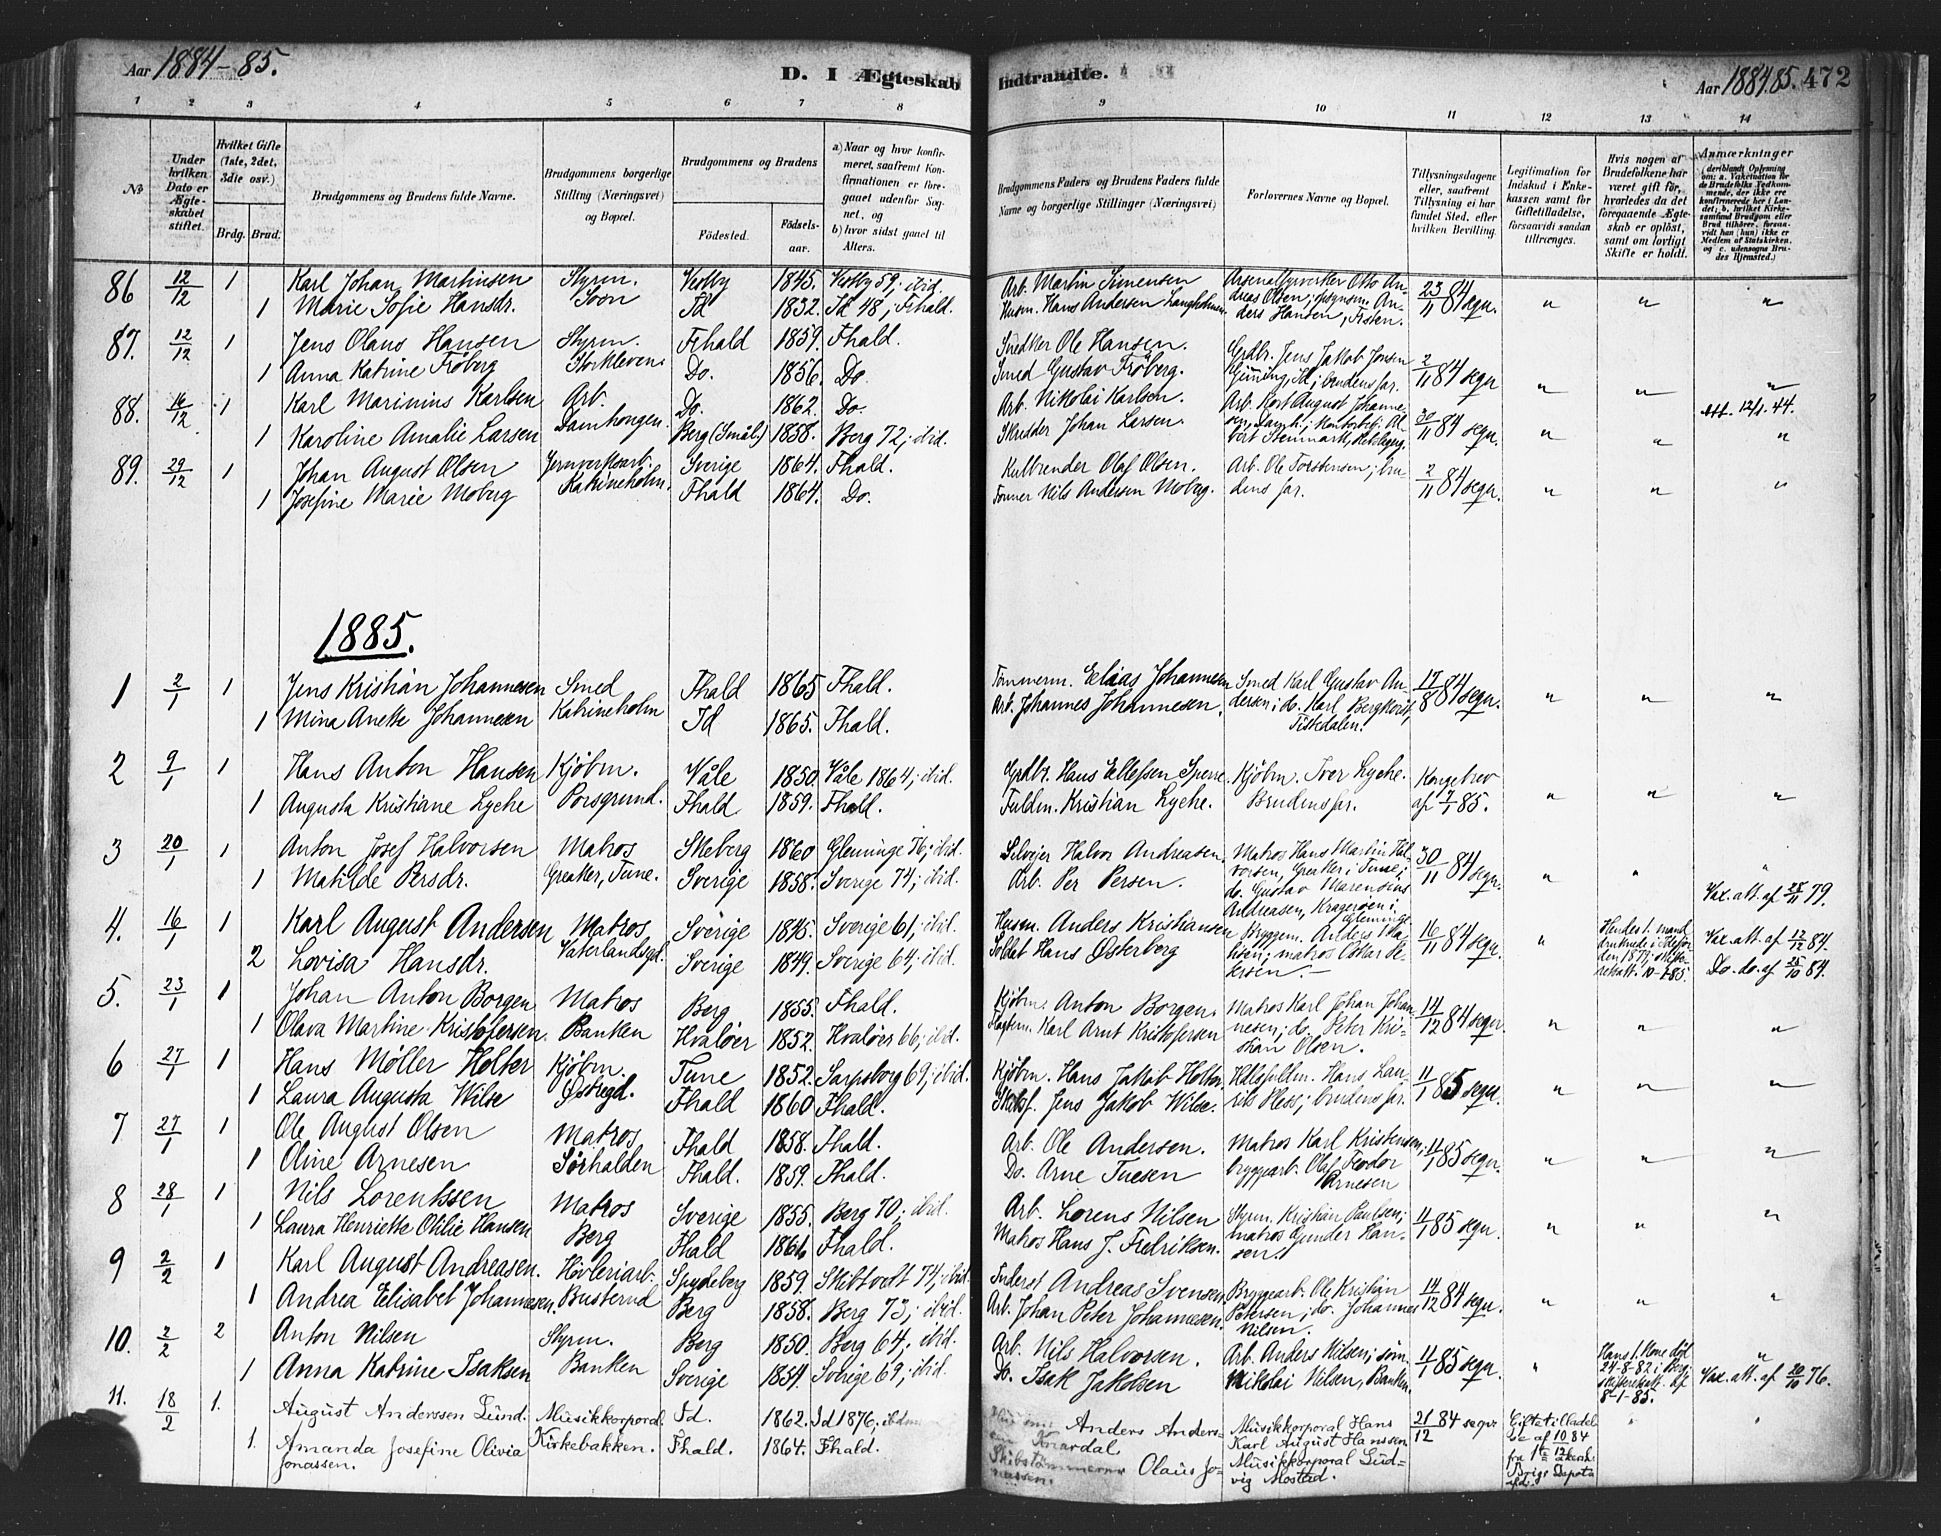 Aar 1884-85.
D. I Ægteskab Indtraadte.
Aar 1884.85. 472
1 2 3 4 5 6 7 8 9 10 11 12 13 14
No
Under hvilken Dato er Ægteskabet stiftet.
Hvilket Gifte (1ste, 2det, 3die osv.)
Brdg. Brud.
Brudgommens og Brudens fulde Navne.
Brudgommens borgerlige Stilling (Næringsvei) og Bopæl.
Brudgommens og Brudens
Fødested.
Fødselsaar.
a) Naar og hvor konfirmeret, saafremt Konfirmationen er foregaaet udenfor Sognet, og
b) hvor sidst gaaet til Alters.
Brudgommens Faders og Brudens Faders fulde Navne og borgerlige Stillinger (Næringsvei)
Forlovernes Navne og Bopæl.
Tillysningsdagene eller, saafremt Tillysning ei har fundet Sted, efter hvilken Bevilling.
Legitimation for Indskud i Enkekassen samt for Giftetilladelse, forsaavidt saadan tiltrænges.
Hvis nogen af Brudefolkene har været gift før, hvorledes da det foregaaende Ægteskab er opløst, samt om lovligt Skifte er holdt.
Anmærkninger
86 12/12 1 Karl Johan Martinsen Styrm. Vestby 1845. Vestby 59; ibid. Arb. Martin Simensen
1 Marie Sofie Hansdr. Soon Id 1832. Id 48; Fhald. Husm. Hans Andersen 23/11 84 segv. " " "
87. 12/12 1 Jens Olaus Hansen Styrm. Fhald 1859. Fhald. Snedker Ole Hansen. Grdbr. Jens Jakob Jonsen
1 Anna Katrine Frøberg Do. 1856. Do. Smed Gustav Frøberg. brudens far. 2/11 84 segv " " "
88. 16/12 1 Karl Marinius Karlsen Arb. Do. 1862. Do. Arb. Nikolai Karlsen. Att. 12/1. 44.
1 Karoline Amalie Larsen Damhougen Berg (Smål.) 1858. Berg 72; ibid. Skredder Johan Larsen. 30/11 84 segv. " " "
89. 29/12 1 Johan August Olsen Jernverksarb. Sverige 1864. Fhald. Kulbrender Olaf Olsen. Arb. Ole Torstensen; bru-
1 Josefine Marie Moberg Katrineholm. Fhald 1864. Do. Former Nils Andersen Moberg. dens far. 2/11 84 segv. " " "
1885.
1 2/1 1 Jens Kristian Johannesen Smed Fhald 1865 Fhald. Tømmerm. Elias Johannesen Smed Karl Gustav An-
1 Mina Anette Johannesen Katrineholm Id 1865. Fhald. Arb. Johannes Johannesen. dersen; do. Karl Bergkvist, Tistedalen. 17/8 84 segv. " " "
2 9/1 1 Hans Anton Hansen Kjøbm. Våle 1850. Våle 1864; ibid. Grdbr. Hans Ellefsen Sperre. Kjøbm. Iver Lyche. Kongebrev
1 Augusta Kristiane Lyche Porsgrund. Fhald. 1859. Fhald. Fuldm. Kristian Lyche. Brudens far. af 7/1 85. " " "
3 20/1 1 Anton Josef Halvorsen Matros Skeberg 1860 Glemminge 76; ibid. Selveier Halvor Andreasen. Matros Hans Martin Hal-
1 Matilde Persdr. Greaker, Tune. Sverige 1858. Sverige 74; ibid. Arb. Per Persen. vorsen, Greaker i Tune; do. Gustav Marensius Andreasen, Kragerøen i Glemminge. 30/11 84 segv. " " " Vax. att. af 25/11 79.
4. 16/1 1 Karl August Andersen Matros Sverige 1845. Sverige 61; ibid. Husm. Anders Kristiansen Bryggem. Anders
2 Lovisa Hansdr. Vaterlandsgd. Sverige 1849. Sverige 64; ibid. Soldat Hans Østerberg matros Oskar Pe-
tersen. 16/11 84 segv. " Hendes 1. mand druknede i 10-1-85. Vax. att. af 12/12 84.
Do. do. af 25/10 84.
5. 23/1 1 Johan Anton Borgen Matros Berg 1855. Fhald. Kjøbm. Anton Borgen. Matros Karl Johan Johan-
1 Olava Martine Kristofersen. Banken Hvaløer 1852. Hvaløer 66; ibid. Karl Arnt Kristofersen nesen; do. Peter Kri-
stian Olsen. 14/12 84 segv " " "
6 27/1 1 Hans Møller Holter Kjøbm. Tune 1852. Sarpsborg 69; ibid. Kjøbm. Hans Jakob Holter. Hans Lau-
1 Laura Augusta Wilse Østregd. Fhald 1860 Fhald. Jens Jakob Wilse. rits Hesse; brudens far. 11/1 85 segv. " " "
7 27/1 1 Ole August Olsen Matros Fhald 1858. Fhald. Arb. Ole Andersen. Matros Karl Kristensen;
1 Oline Arnesen Sørhalden Fhald. 1859. Fhald. Do. Arne Tuesen bryggearb. Olaf Feodor Arnesen 11/1 85 segv. " " "
8 28/1 1 Nils Lorentssen Matros Sverige 1855. Berg 70; ibid. Arb. Lorens Nilsen Styrm. Kristian Paulsen;
1 Laura Henriette Otilie Hansen Berg Fhald 1861. Fhald. Matros Hans J. Fredriksen. matros Gunder Han-
sen. 11/1 85 segv. " " "
9 2/2 1 Karl August Andreasen. Høvleriarb. Spydeberg 1859. Skibtvedt 74; ibid. Inderst Andreas Svensen. Bryggearb. Ole Kristian
1 Andrea Elisabet Johannesen. Busterud Berg 1858. Berg 73; ibid. Arb. Johan Peter Johannesen. Petersen; do. Johannes Nilsen. 14/12 84 segv. " " "
10. 2/2 2 Anton Nilsen Styrm. Berg 1850. Berg 64; ibid. Arb. Nils Halvorsen. Arb. Anders Nilsen; søm.
1 Anna Katrine Isaksen Banken Sverige 1854. Sverige 69; ibid. Do. Isak Jakobsen Nikolai Nilsen, Banken. 11/1 85 segv. " Hans 1. Kone død 24-8-82 i Berg; skifteratt. af 8-1-85. " Vax. att. af 20/10 76.
11. 18/2 1. August Anderssen Lund. Musikkorporal. Id. 1862. Id 1876; ibidm Anders Anders- Musikkorporal Hans 21/12 84 segv Giftetillladel-
1. Amanda Josefine Olivia Kirkebakken. Fhald. 1864. Fhald. Skibstømmerm Olaus Jo- Karl August Hanssen se af 10/12 84
Jonassen. nassen. Musikkorporal Lud-
vig Mostad. fra 1ste Brigs Depota